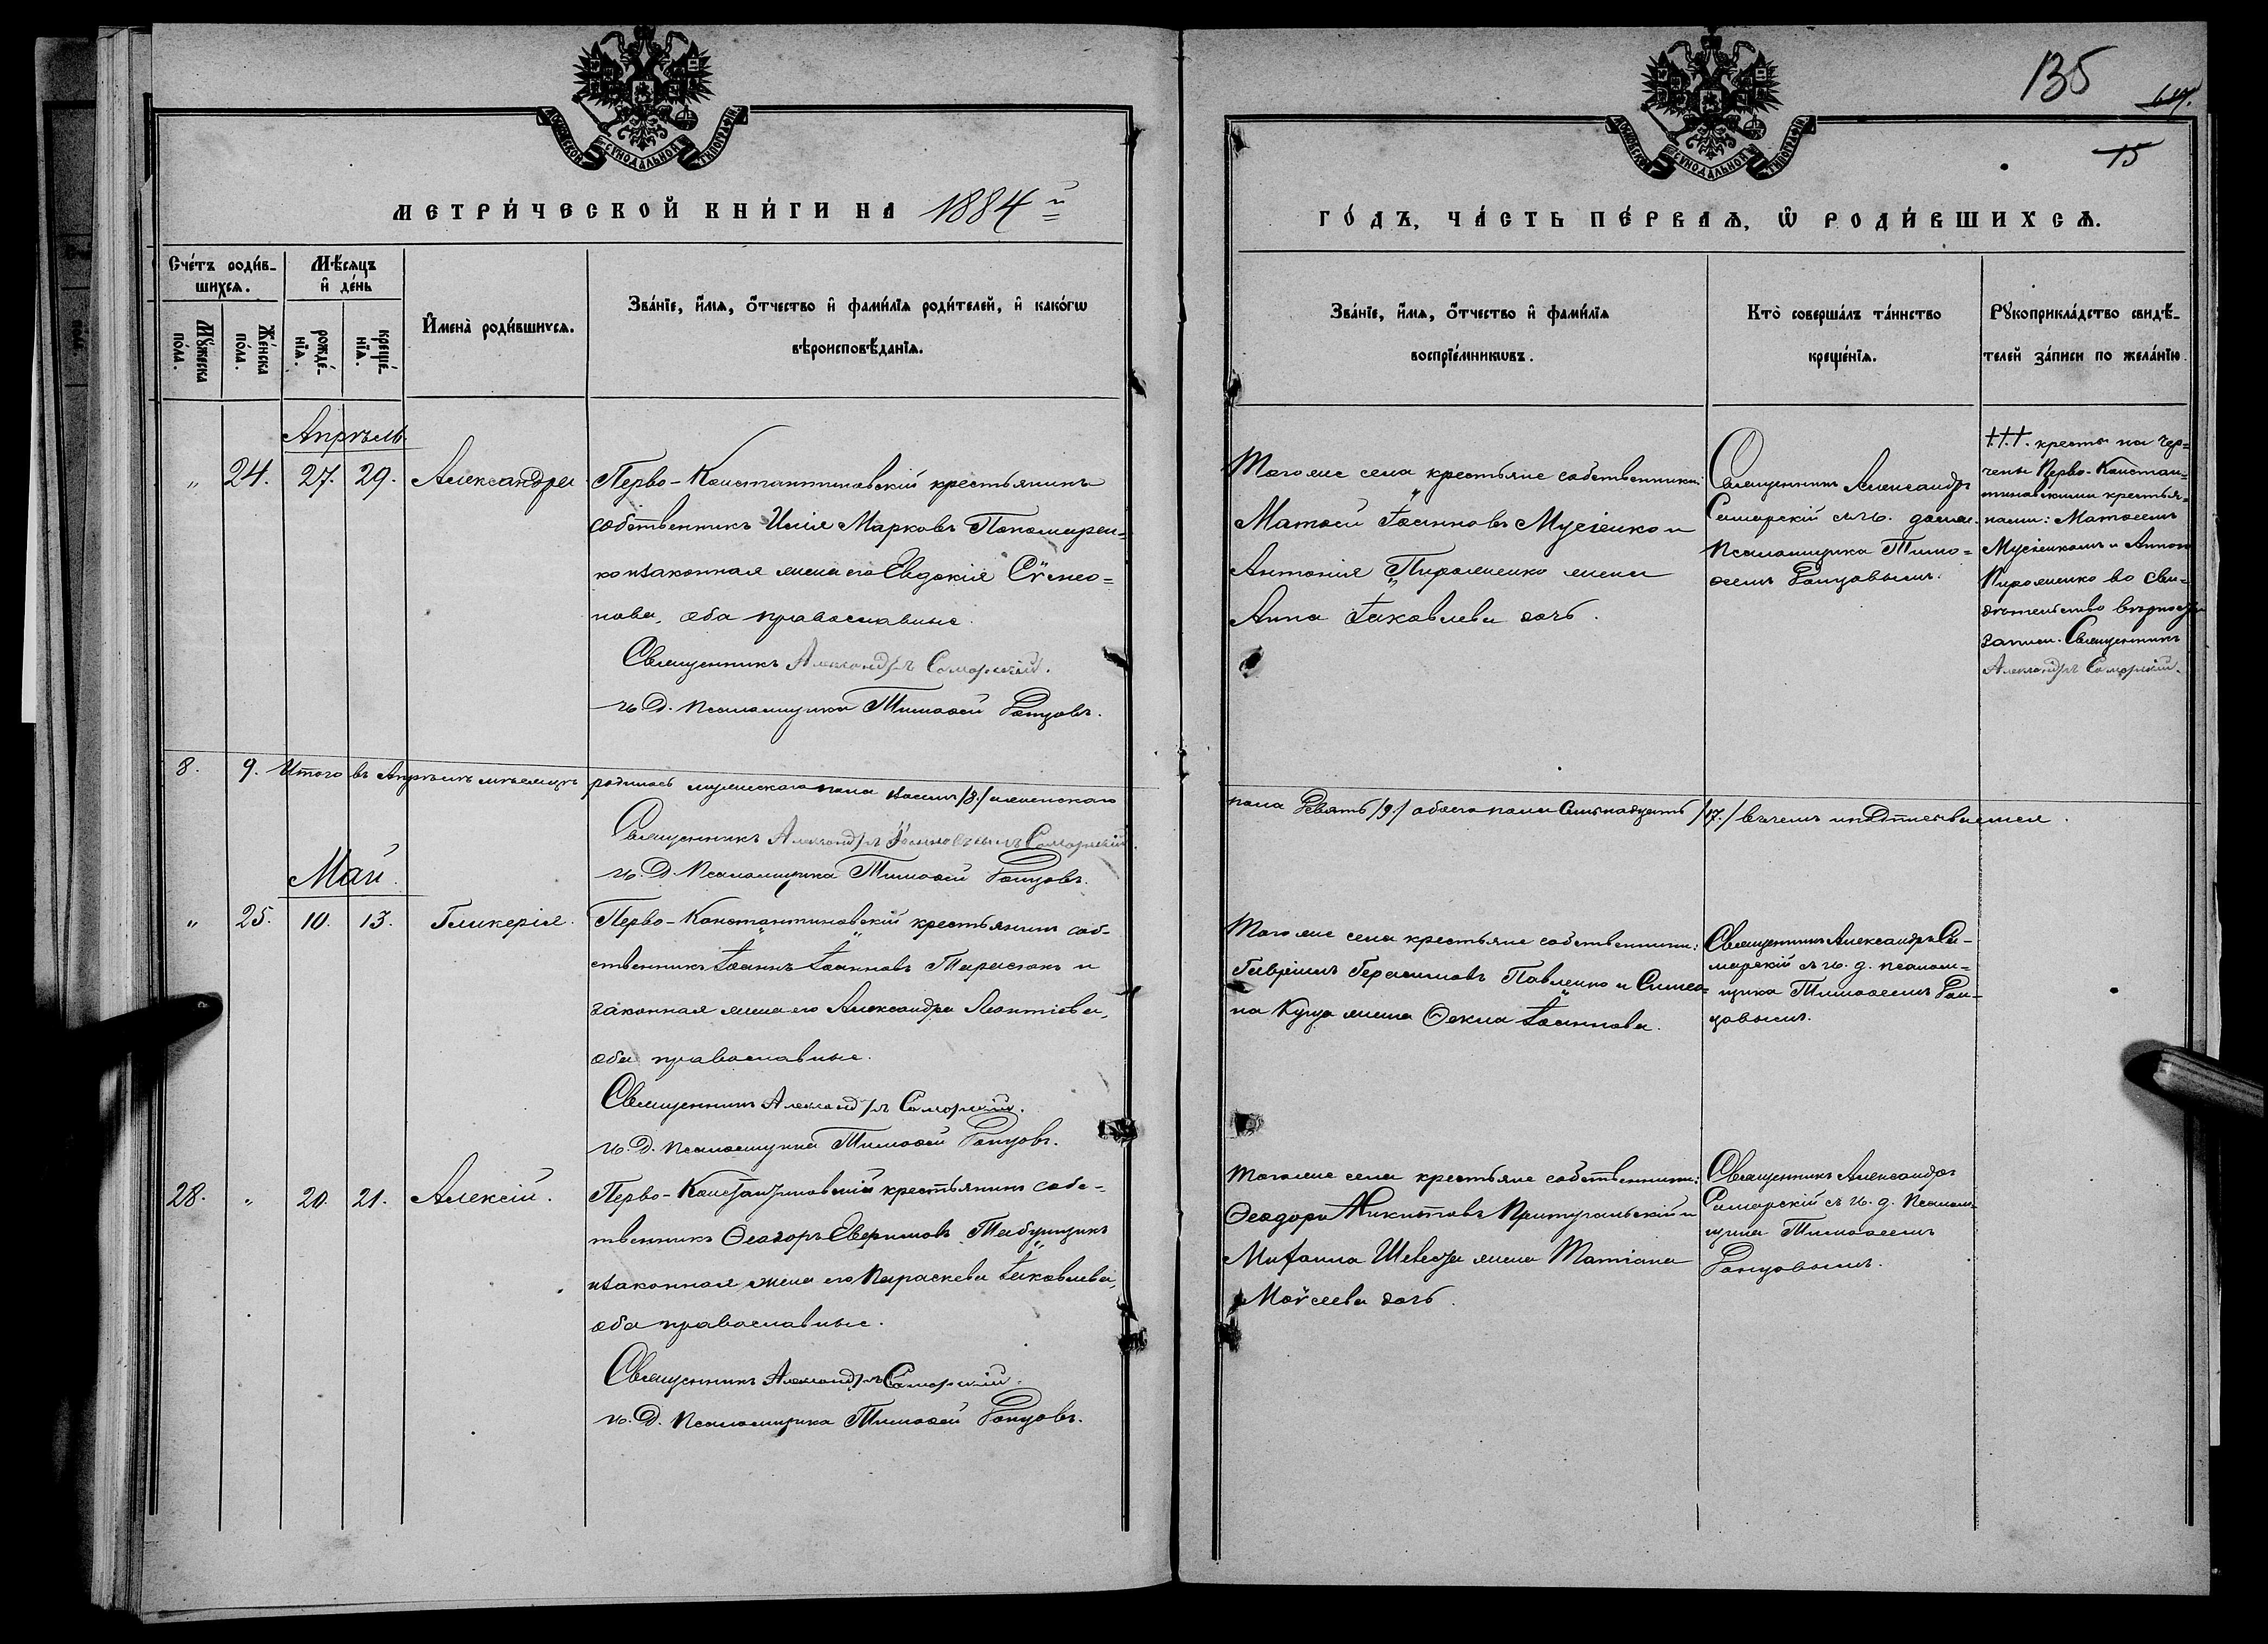 135
15
МОСКОВСКОЙ СѴНОДАЛЬНОЙ ТИПОГРАФІИ
МОСКОВСКОЙ СѴНОДАЛЬНОЙ ТИПОГРАФІИ
МЕТРИ́ЧЕСКОЙ КНИ́ГИ НА 1884й
ГО́ДЪ, ЧА́СТЬ ПЕ́РВАѦ, Ѡ РОДИ́ВШИХСѦ.
Сче́тъ роди́в-
шихсѧ.
Мꙋ́жеска по́ла.
Же́нска по́ла.
Мѣ́сѧцъ
и҆ де́нь
рожде́-
нїѧ.
креще́-
нїѧ.
И҆мена̀ роди́вшихсѧ.
Зва́нїе, и҆́мѧ, о҆́тчество и҆ фами́лїѧ роди́телей, и҆ како́гѡ
вѣроисповѣ́данїѧ.
Зва́нїе, и҆́мѧ, о҆́тчество и҆ фами́лїѧ
воспрїе́мникѡвъ.
Кто̀ соверша́лъ та́инство
креще́нїѧ.
Рꙋкоприкла́дство свидѣ́-
телей за́писи по жела́нїю.
Апрѣль
" 24. 27. 29. Александра
Перво-Константиновскій крестьянинъ
собственникъ Илія Марковъ Пономарен=
ко и законная жена его Евдокія Сѵмео=
нова, оба православные.
Священникъ Александръ Самарскій.
И. Д. Псаломщика Тимоѳей Ранцовъ.
Того же села крестьяне собственники:
Матѳей Іоанновъ Мусіенко и
Антонія Пироженко жена
Анна Іаковлева дочь.
Священникъ Александръ
Самарскій съ и. должн.
Псаломщика Тимо=
ѳеемъ Ранцовымъ.
†.†.†. кресты на чер=
чены Перво-Констан=
тиновскими крестья=
нами: Матѳеемъ
Мусіенкомъ и Анною
Пироженко во сви=
дѣтельство вѣрности
записи. Священникъ
Александръ Самарскій.
8. 9. Итого въ Апрѣлѣ мѣсяцѣ родилось мужескаго пола восемь /8./ женскаго
пола Девять /9./ обоего пола Семьнадцать /17./ въ чемъ и подписываемся.
Священникъ Александръ Іоанновъ сынъ Самарскій.
И. Д. Псаломщика Тимоѳей Ранцовъ.
Май.
" 25. 10. 13. Гликерія.
Перво-Константиновскій крестьянинъ соб-
ственникъ Іоаннъ Іоанновъ Тарасюкъ и
законная жена его Александра Леонтіева,
оба православные.
Священникъ Александръ Самарскій.
И. Д. Псаломщика Тимоѳей Ранцовъ.
Того же села крестьяне собственники:
Гавріилъ Герасимовъ Павленко и Симео=
на Куца жена Ѳекла Іоаннова.
Священникъ Александръ Са-
марскій съ и. д. псалом=
щика Тимоѳеемъ Ран-
цовымъ.
28. " 20. 21. Алексій.
Перво-Константиновскій крестьянинъ собс=
твенникъ Ѳеодоръ Евфимовъ Табунщикъ
и законная жена его Параскева Іаковлева,
оба православные.
Священникъ Александръ Самарскій.
И. Д. Псаломщика Тимоѳей Ранцовъ.
Того же села крестьяне собственники:
Ѳеодоръ Никитовъ Притульскій и
Михаила Шевеля жена Татіана
Моѵсеева дочь.
Священникъ Александръ
Самарскій съ и. д. Псалом-
щика Тимоѳеемъ
Ранцовымъ.